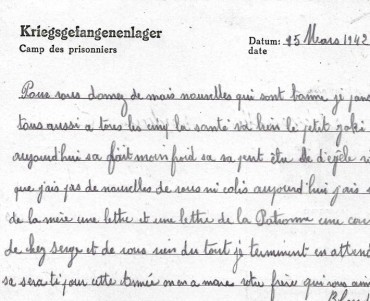 Kriegsgefangenenlager
Camp des prisonniers
Datum: 15 Mars 1942
date
Pour vous donnez de mais nouvelles qui sont bonne je
tous aussi a tous les cinq la santé va bien le petit
aujourd'hui sa fait moin froid sa
que jais pas de nouvelles de vous ni colis aujourd'hui jais
de la mère une lettre et une lettre de la Patronne une
de chez serge et de vous rien du tout je terminent en
sa sera ti jour cette année on en a mare votre frère qui vous